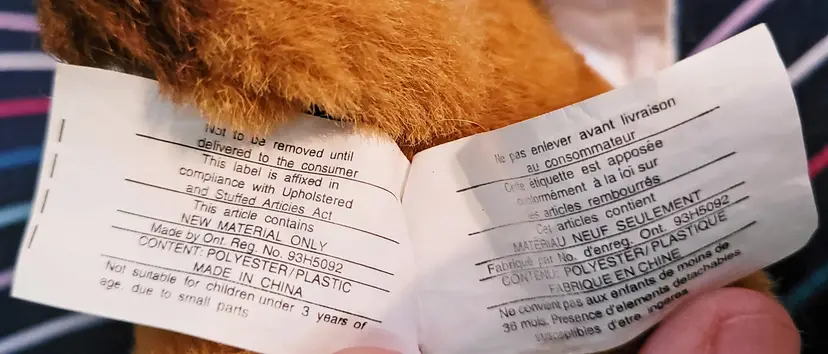 Not to be removed until
delivered to the consumer
This label is affixed in
compliance with Upholstered
and Stuffed Articles Act
This article contains
NEW MATERIAL ONLY
Made by Ont. Reg. No. 93H5092
CONTENT: POLYESTER/PLASTIC
MADE IN CHINA
Not suitable for children under 3 years of
age, due to small parts
Ne pas enlever avant livraison
au consommateur
Cette étiquette est apposée
conformément à la loi sur
les articles rembourrés
Cet articles contient
MATÉRIAU NEUF SEULEMENT
Fabriqué par No. d'enreg. Ont. 93H5092
CONTENU: POLYESTER/PLASTIQUE
FABRIQUE EN CHINE
Ne convient pas aux enfants de moins de
36 mois. Presence d'elements detachables
susceptibles d'etre ingeres